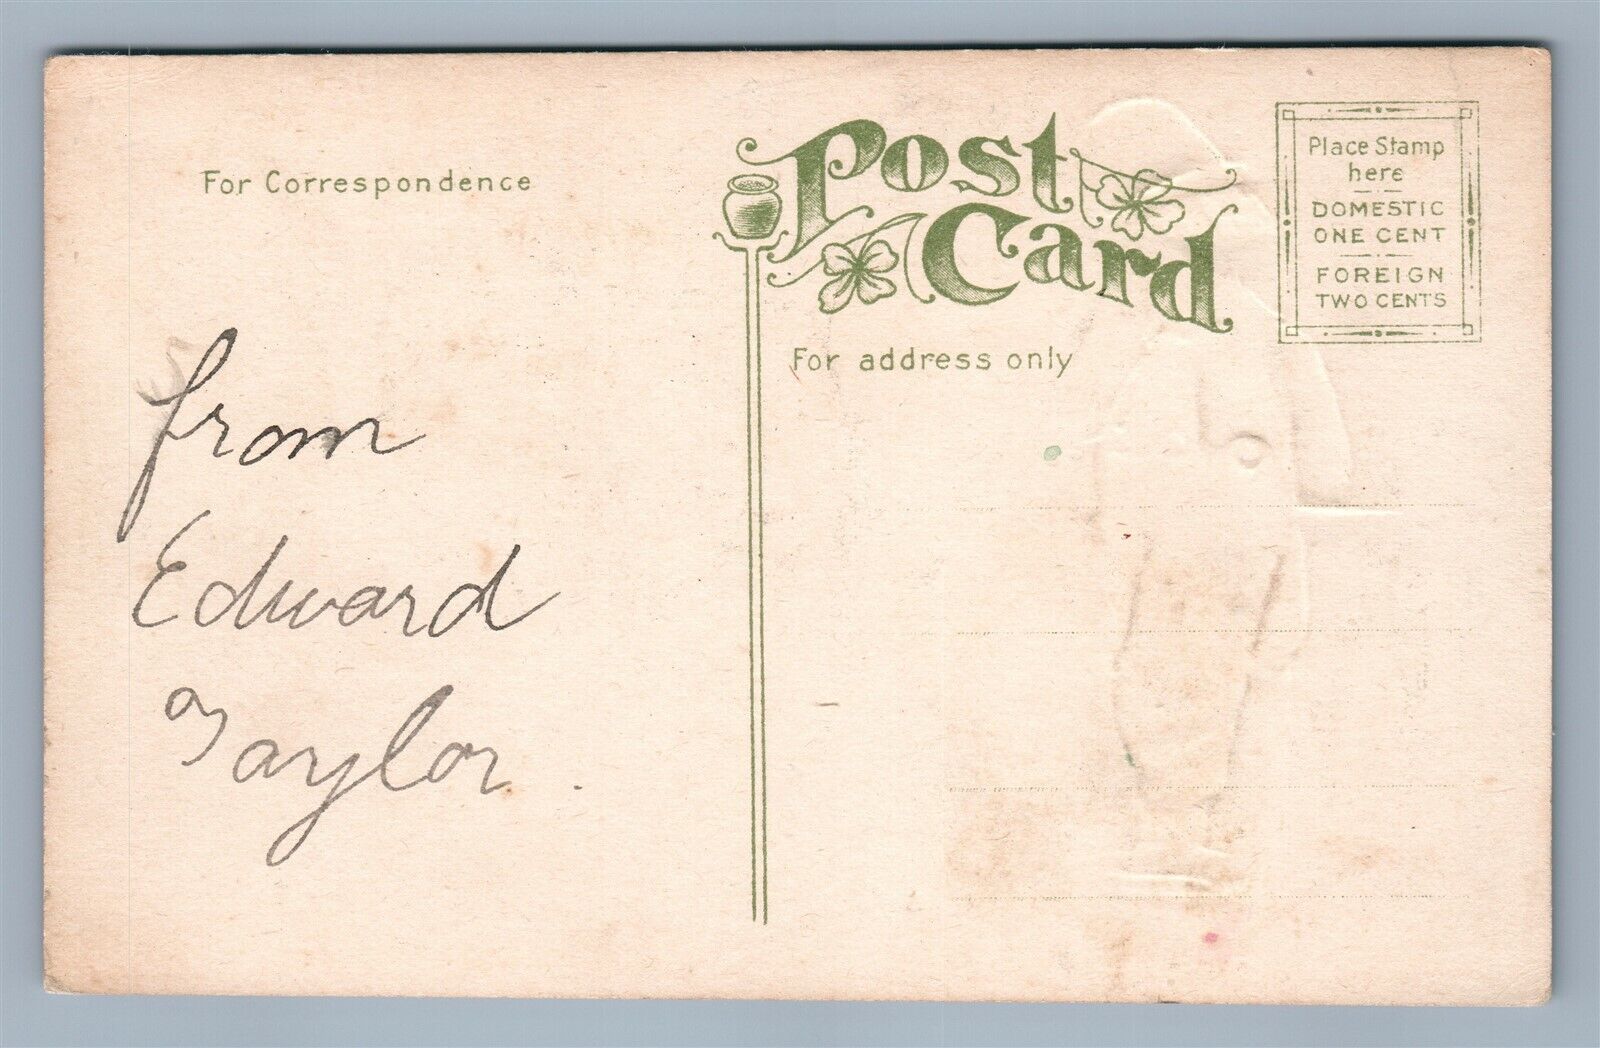 For Correspondence
Post
Card
Place Stamp
here
DOMESTIC
ONE CENT
FOREIGN
TWO CENTS
For address only
from
Edward
Taylor